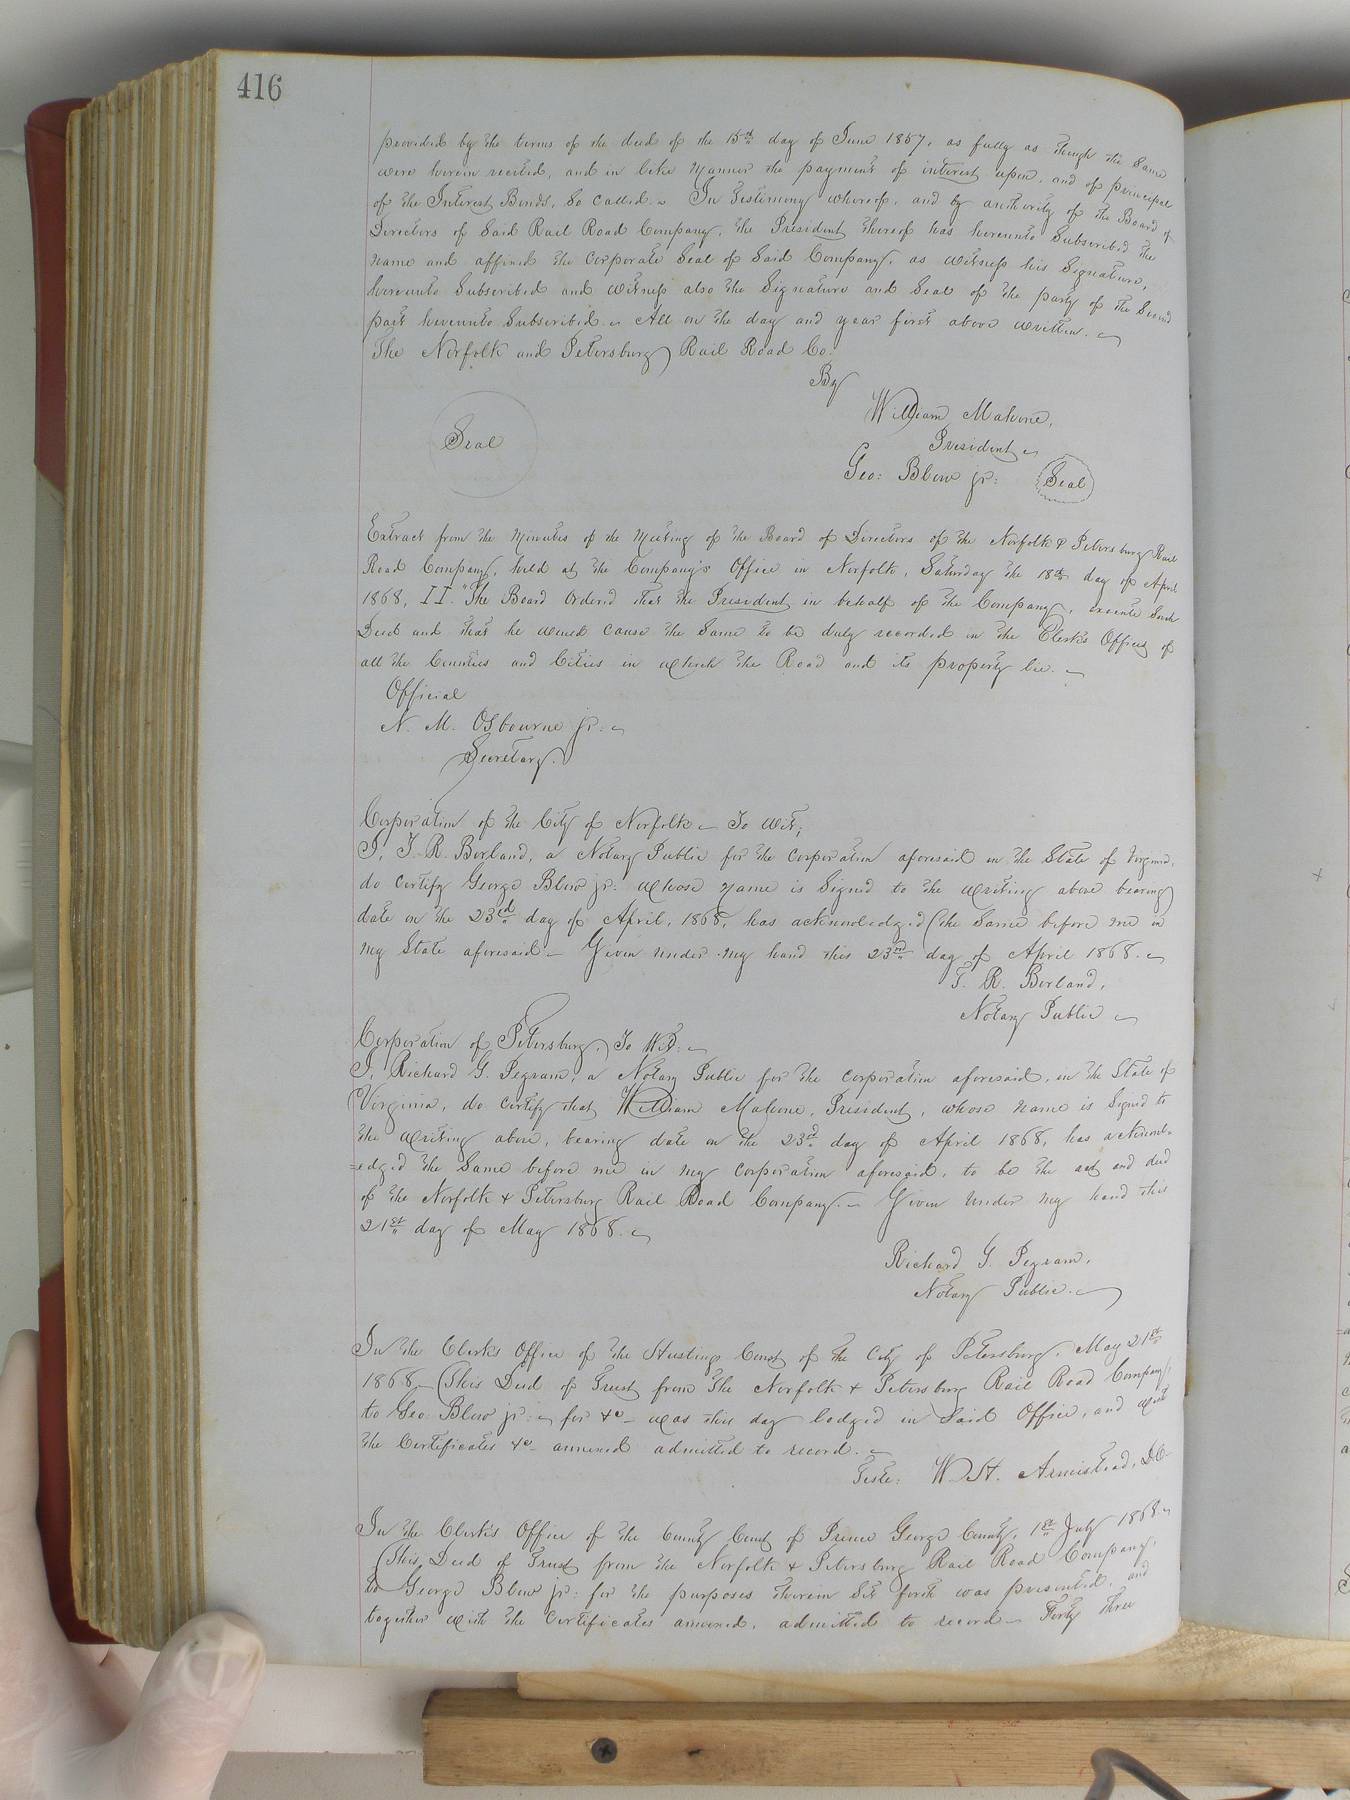 416
provided by the terms of the deed of the 15th day of June 1857, as fully as though the same
were herein recited, and in like manner the payment of interest upon, and of principal
of the Interest Bonds, So Called. In Testimony whereof, and by authority of the Board of
Directors of Said Rail Road Company, the President thereof has hereunto Subscribed the
name and affixed the Corporate Seal of Said Company, as witness his Signature,
hereunto Subscribed and witness also the Signature and Seal of the party of the Second
part hereunto Subscribed. All on the day and year first above written.
The Norfolk and Petersburg Rail Road Co.
By
William Mahone,
President
Seal
Geo: Blow jr: Seal
Extract from the Minutes of the Meeting of the Board of Directors of the Norfolk & Petersburg Rail
Road Company, held at the Company's Office in Norfolk, Saturday the 18th day of April
1868, II. "The Board Ordered that the President in behalf of the Company, execute Such
Deed and that he would cause the Same to be duly recorded in the Clerk's Offices of
all the Counties and Cities in which the Road and its property lie.
Official
N. M. Osbourne jr.
Secretary.
Corporation of the City of Norfolk To wit;
I, T. R. Borland, a Notary Public for the corporation aforesaid in the State of Virginia,
do certify George Blow jr: whose name is Signed to the writing above bearing
date on the 23rd day of April, 1868, has acknowledged the Same before me in
my State aforesaid Given under my hand this 23rd day of April 1868.
T. R. Borland,
Notary Public
Corporation of Petersburg, To Wit:
I, Richard G. Pegram, a Notary Public for the corporation aforesaid, in the State of
Virginia, do certify that William Mahone, President, whose name is Signed to
the writing above, bearing date on the 23d day of April 1868, has acknowl=
=edged the Same before me in my corporation aforesaid, to be the act and deed
of the Norfolk & Petersburg Rail Road Company. Given under my hand this
21st day of May 1868.
Richard G. Pegram,
Notary Public.
In the Clerk's Office of the Hustings Court of the City of Petersburg, May 21st
1868 This Deed of Trust from The Norfolk & Petersburg Rail Road Company,
to Geo. Blow jr: for &c was this day lodged in Said Office, and with
the Certificates &c annexed admitted to record.
Teste: W. H. Armistead, D.C.
In the Clerk's Office of the County Court of Prince George County, 1st July 1868
This Deed of Trust from the Norfolk & Petersburg Rail Road Company,
to George Blow jr: for the purposes therein Set forth was presented, and
together with the Certificates annexed, admitted to record Forty three